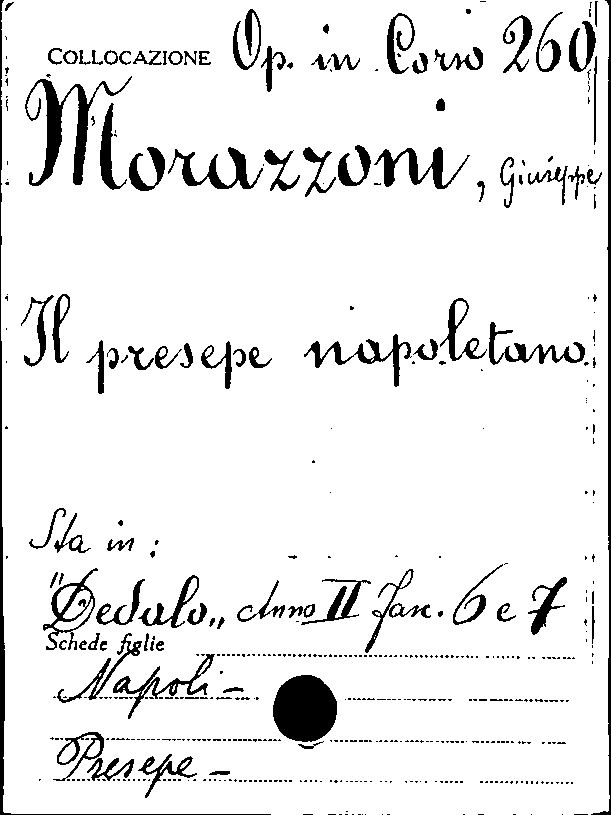 COLLOCAZIONE Op. in Corso 260
Morazzoni, Giuseppe
Il presepe napoletano.
Sta in :
"Dedalo„ Anno II Fasc. 6 e 7
Schede figlie
Napoli -
Presepe -